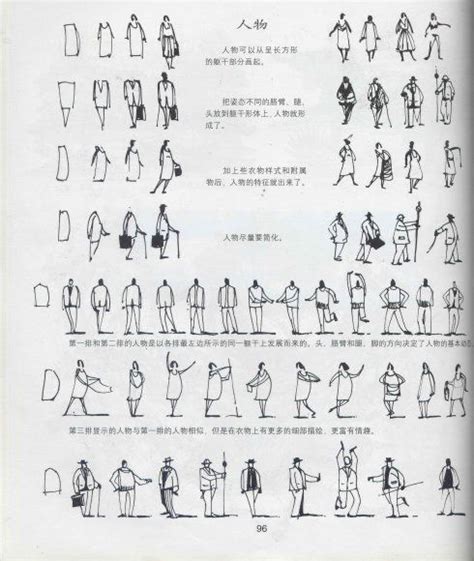 人物
人物可以从呈长方形
的躯干部分画起。
把姿态不同的胳臂、腿、
头放到躯干形体上，人物就形
成了。
加上些衣物样式和附属
物后，人物的特征就出来了。
人物尽量要简化。
第一排和第二排的人物是以各排最左边所示的同一躯干上发展而来的。头、胳臂和腿、脚的方向决定了人物的基本动态
第三排显示的人物与第一排的人物相似，但是在衣物上有更多的细部描绘，更富有情趣。
96